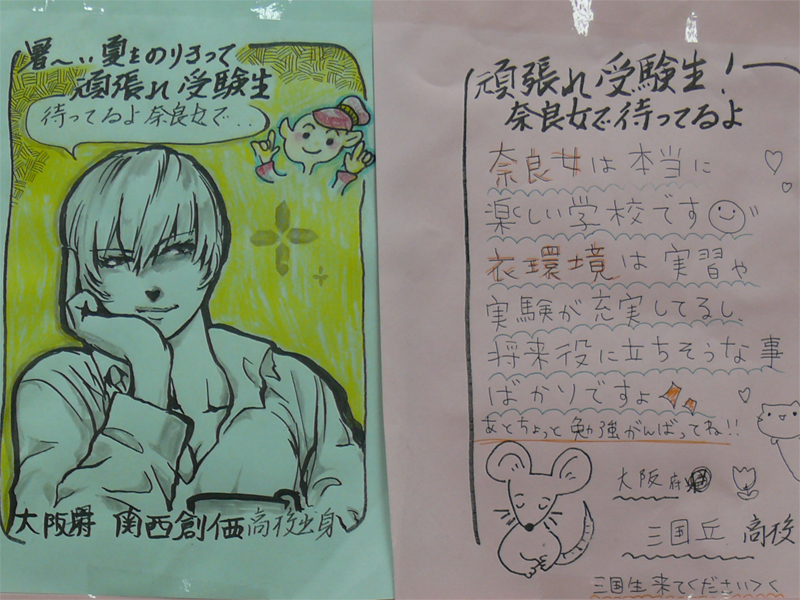 暑〜い夏をのりきって
頑張れ受験生
待ってるよ奈良女で...
大阪府 関西創価高校出身
頑張れ受験生!
奈良女で待ってるよ
奈良女は本当に
楽しい学校です
衣環境は実習や
実験が充実してるし、
将来役に立ちそうな事
ばかりですよ
あとちょっと勉強がんばってね!!
大阪府
三国丘 高校
三国生来てくださいっ